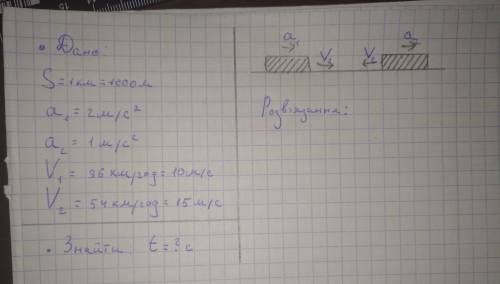 • Дано:
S = 1 км = 1000 м
a₁ = 2 м/с²
a₂ = 1 м/с²
V₁ = 36 км/год = 10 м/с
V₂ = 54 км/год = 15 м/с
• Знайти t = ? с
a₁ V₁ V₂ a₂
Розв'язання: